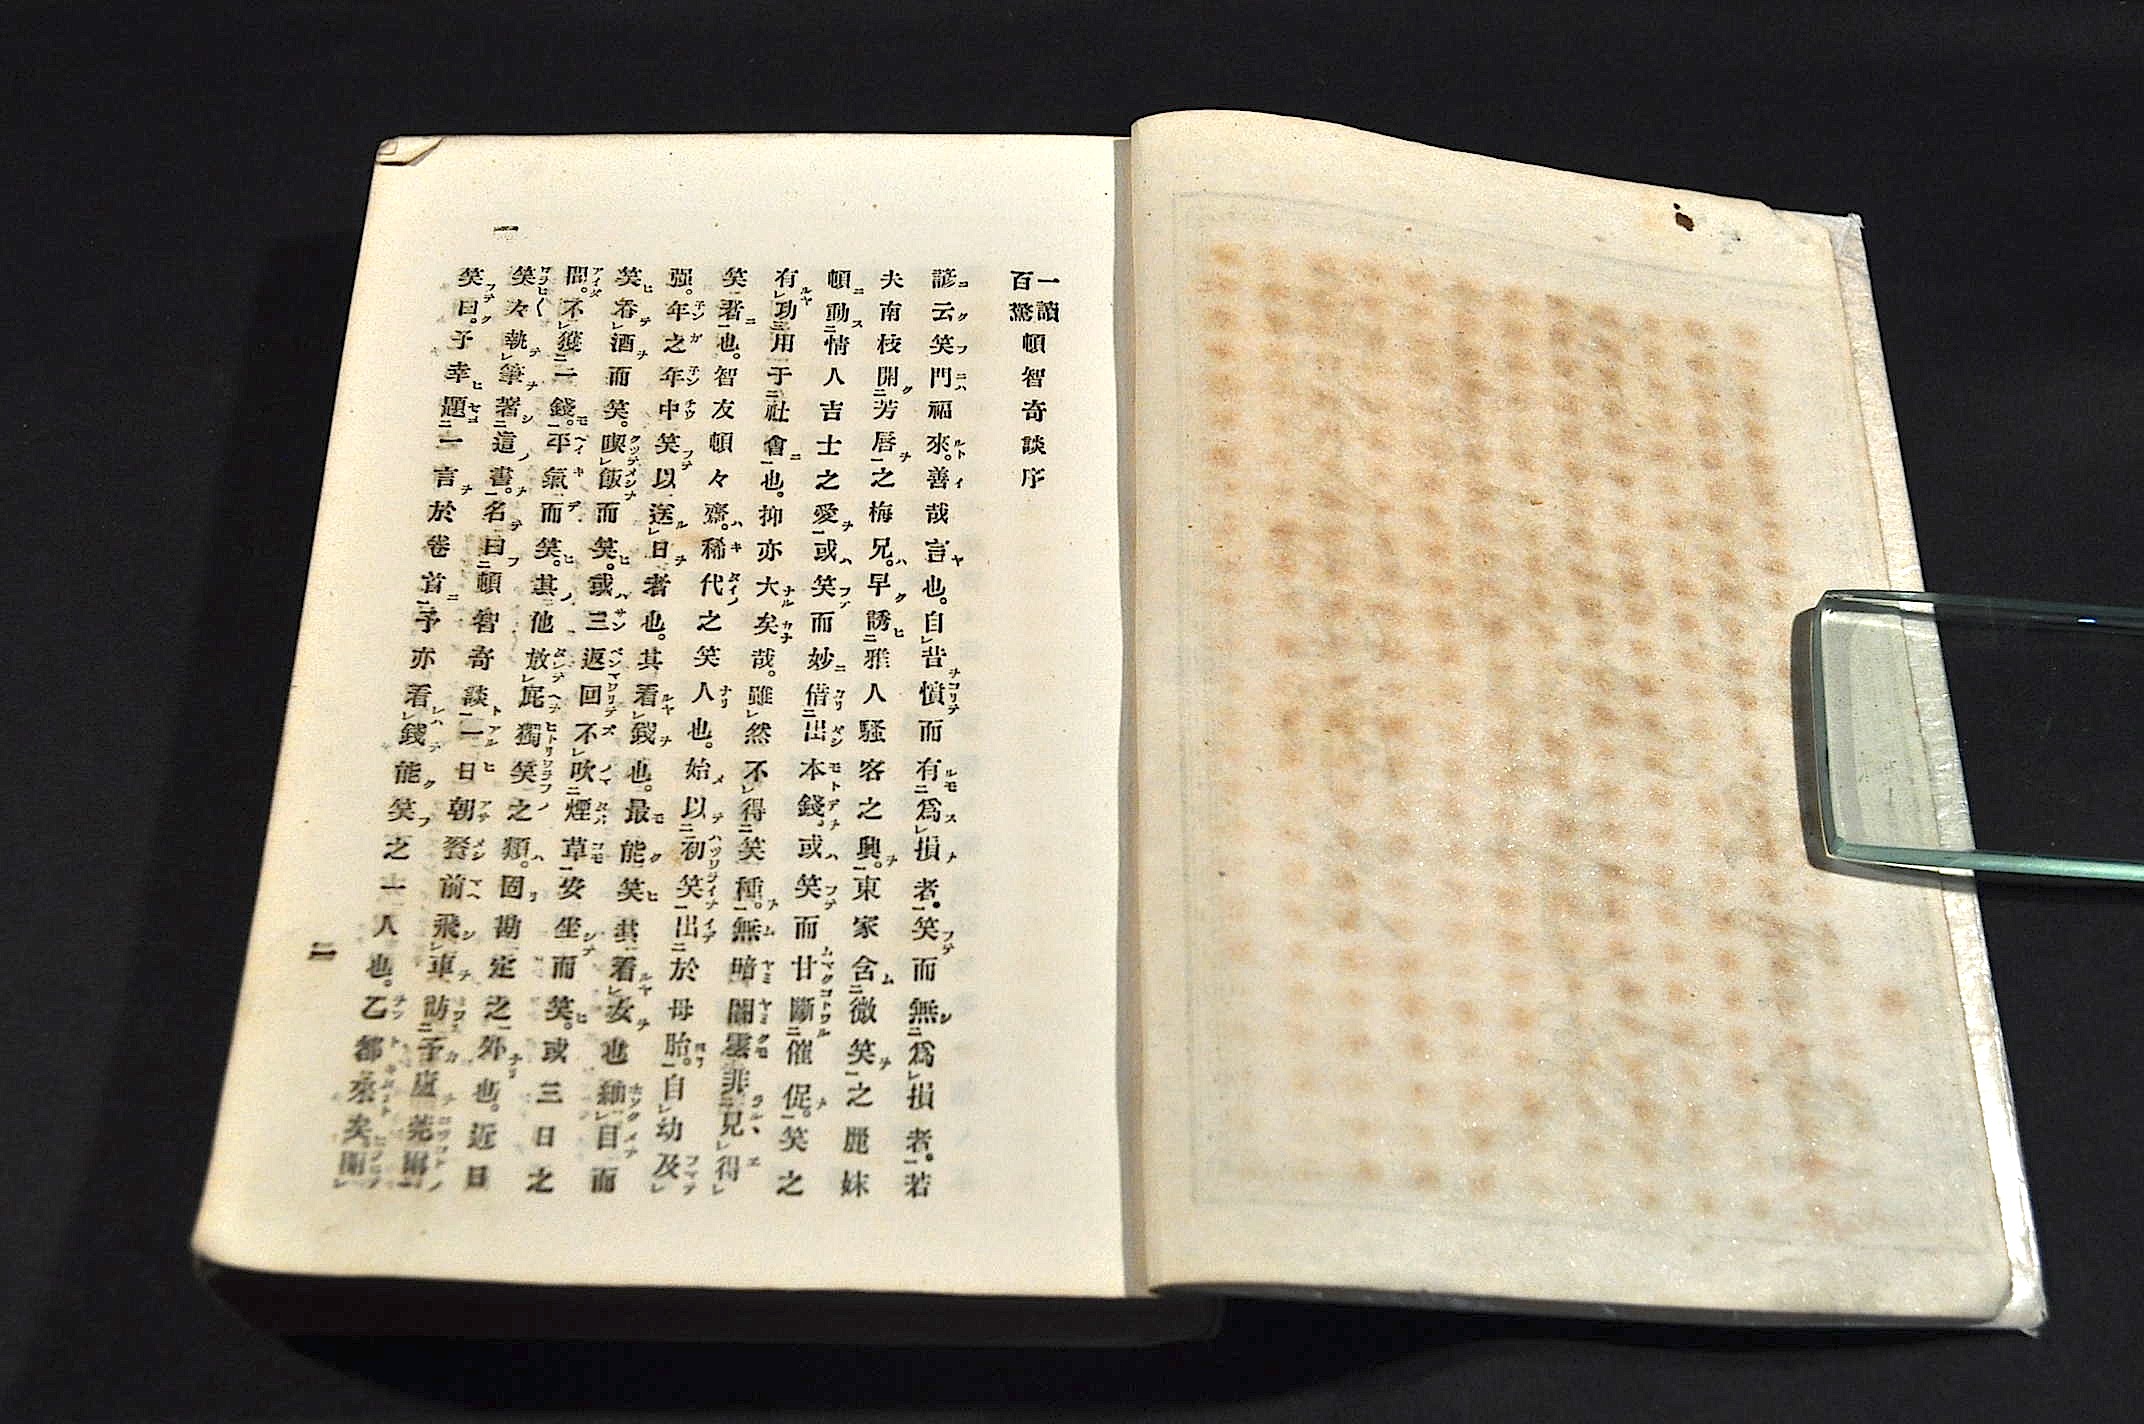 一讀百驚頓智奇談序
諺云笑門福來。善哉言也。自昔憤而有爲損者。笑而無爲損者。若
夫南枝開芳唇之梅兄。早誘雅人騷客之興。東家含微笑之麗妹
頓動情人吉士之愛或笑而妙借出本錢。或笑而甘斷催促。笑之
有功用于社會也。抑亦大矣哉。雖然不得笑種。無暗闇雲非見得
笑者也。智友頓々齋。稀代之笑人也。始以初笑出於母胎。自幼及
强。年之年中笑以送日者也。其看錢也。最能笑其看女也細目而
笑。呑酒而笑。喫飯而笑。或三返回不吹煙草安坐而笑。或三日之
間。不獲一錢。平氣而笑。其他放屁獨笑之類。固勘定之外也。近日
笑々執筆著這書。名曰頓智奇談一日朝餐前飛車訪予廬莞爾
笑曰。予幸題一言於卷首予亦看錢能笑之一人也。乙部來矣開
一
二